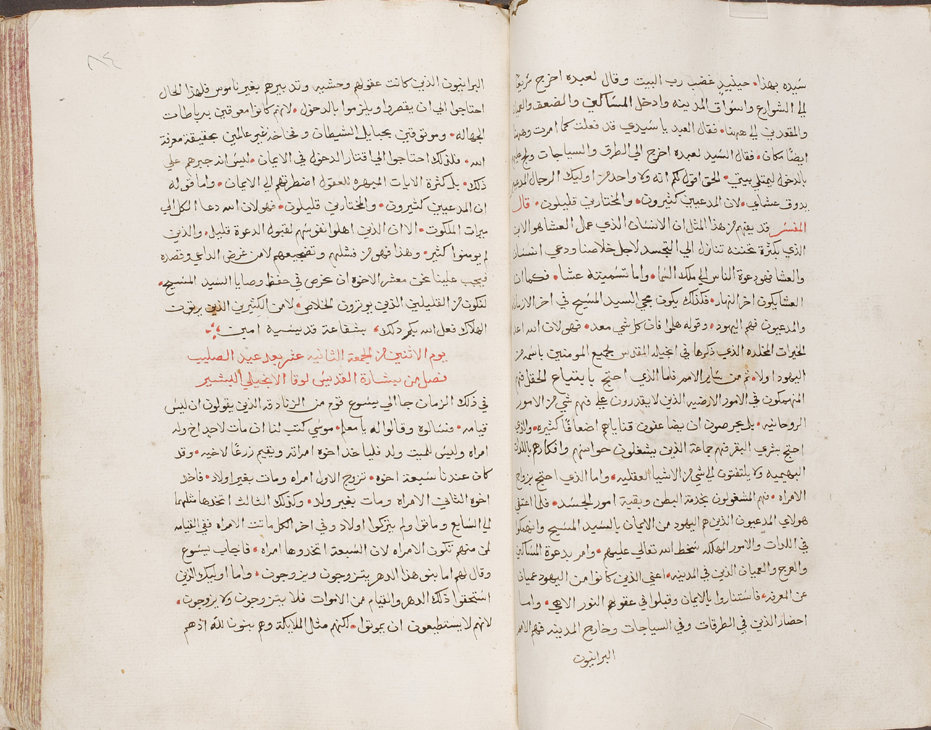 سيده بهذا حينيد غضب رب البيت وقال لعبده اخرج سريعا
الي الشوارع واسواق المدينه وادخل المساكين والضعفا
والمقعدين الي ههنا فقال العبد يا سيدي قد فعلت كما امرت وههنا
ايضا مكان فقال السيد لعبده اخرج الي الطرق والسياجات
بالدخول ليمتلي بيتي الحق اقول لكم انه ولا واحد من اوليك الرجال
يدوق عشاي لان المدعيين كثيرون والمختارين قليلون قال
المفسر قد يفهم من هذا المثل ان الانسان الذي عمل العشا هو
الذي بكثرة تحننه تنازل الي التجسد لاجل خلاصنا ودعي
والعشا فهو دعوة الناس الي ملك السما واما تسميته عشا فكما ان
العشا يكون اخر النهار فلذلك يكون مجي السيد المسيح في اخر
والمدعيون فهم اليهود وقوله هلوا فان كل شي معد فهو لان الله
الخيرات المخلده الذي ذكرها في انجيله المقدس لجميع المومنين
اليهود اولا ثم من ساير الامم فاما الذي احتج بابتياع الحقل فهم
المنهمكون في الامور الارضيه الذين لا يقدرون علي فهم شي من الامور
الروحانيه بل يحرصون ان يضاعفون قناياهم اضعافا كثيره
احتج بشري البقر فهم جماعة الذين يشغلون حواسهم وافكارهم
البهيميه ولا يلتفتون الي شي من الاشيا العقليه واما الذي احتج بزواج
الامراه فهم المشغولون بخدمة البطن وبقية امور الجسد فلما
هولاي المدعيون الذين هم اليهود من الايمان بالسيد المسيح
في اللدات والامور المهلكه سخط الله تعالي عليهم وامر بدعوة
والعرج والعميان الذين في المدينه اعني الذين كانوا من اليهود عميان
عن المعرفه فاستناروا بالايمان وقبلوا في عقولهم النور الالهي واما
احضار الذين في الطرقات وفي السياجات وخارج المدينه فهم الامم
البرانيون
٨٤
البرانيون الذين كانت عقولهم وحشيه وتدبيرهم بغير ناموس فلهذا الحال
احتاجوا الي ان يقصروا ويلزموا بالدخول لانهم كانوا معوقين برباطات
الجهاله وموثوقين بحبايل الشيطان غير عالمين بحقيقة معرفة
الله فلذلك احتاجوا الي اقتتار الدخول في الايمان ليس انه جبرهم علي
ذلك بل كثرة الايات المبهره للعقول اضطرتهم الي الايمان واما قوله
ان المدعيين كثيرون والمختارين قليلون فهو لان الله دعا الكل الي
ميرات الملكوت الا ان الذين اهلوا نفوسهم لقبول الدعوة قليل والذين
لم يومنوا كثير وهذا فهو من فشلهم وتضجيعهم لا من غرض الداعي وقصده
فيجب علينا نحن معشر الاخوه ان نحرص في حفظ وصايا السيد المسيح
لنكون من القليلين الذين يوثرون الخلاص لا من الكثيرين الذين يرثون
الهلاك فعل الله بكم ذلك بشفاعة قديسيه امين
يوم الاثنين من الجمعة الثانيه عشر بعد عيد الصليب
فصل من بشارة القديس لوقا الانجيلي البشير
في ذلك الزمان جا الي يسوع قوم من الزنادقه الذين يقولون ان ليس
قيامه فسالوه وقالوا له يا معلم موسي كتب لنا ان مات لاحد اخ وله
امراه وليس للميت ولد فلياخذ اخوه امراته ويقيم زرعا لاخيه وقد
كان عندنا سبعة اخوه تزوج الاول امراه ومات بغير اولاد فاخد
اخوه الثاني الامراه ومات بغير ولد وكذلك الثالث اتخدها مثلهما
الي السابع وماتوا ولم يتركوا اولاد وفي اخر الكل ماتت الامراه ففي القيامه
لمن منهم تكون الامراه لان السبعة اتخدوها امراه فاجاب يسوع
وقال لهم اما بنو هذا الدهر يتزوجون ويزوجون واما اوليك الذين
استحقوا ذلك الدهر والقيام من الاموات فلا يتزوجون ولا يزوجون
لانهم لا يستطيعون ان يموتوا لكنهم مثل الملايكة وهم بنون لله اذ هم